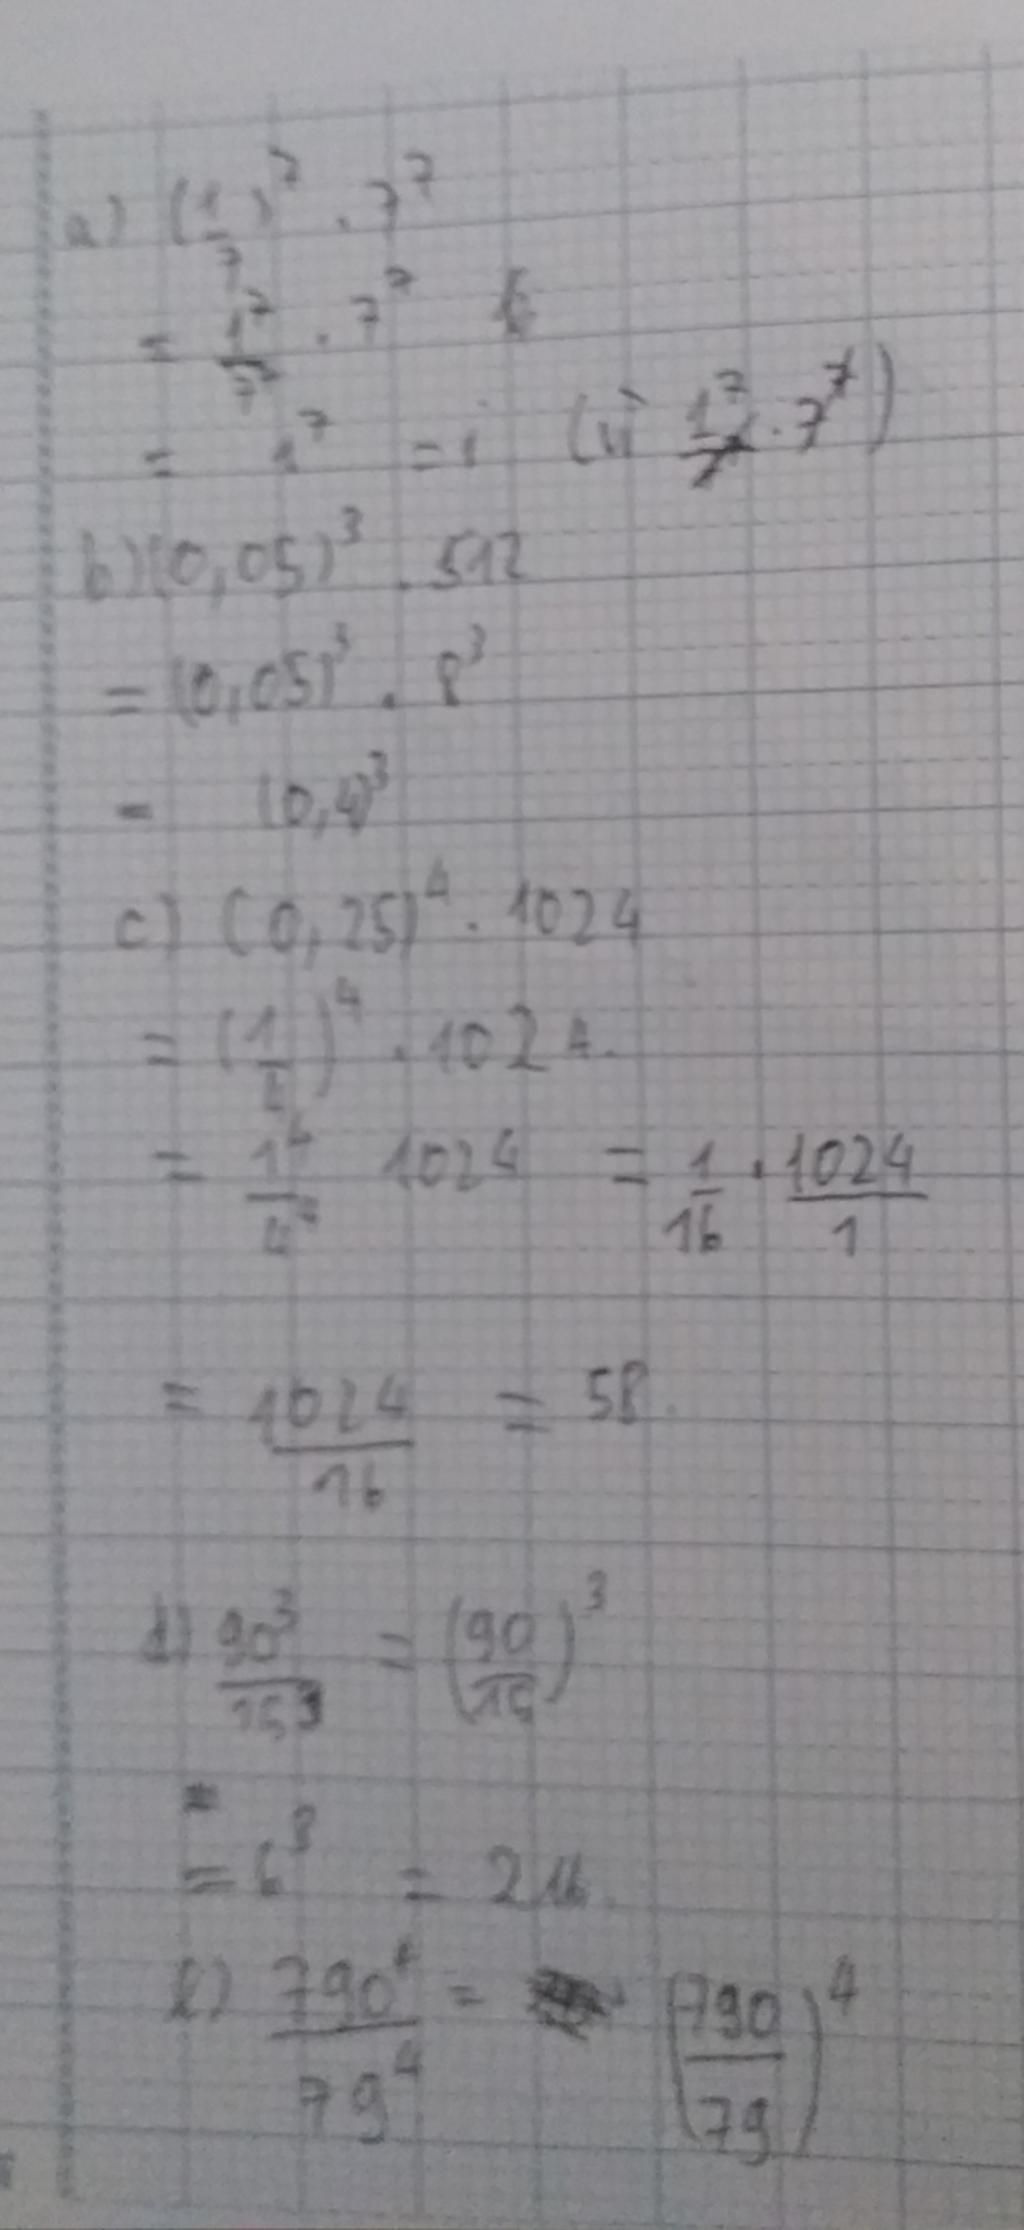 a) (1/7)^7 . 7^7
= 1^7/7^7 . 7^7
= 1^7 = 1 (vì 1^7/7^7 . 7^7)
b) (0,05)^3 . 512
= (0,05)^3 . 8^3
= (0,4)^3
c) (0,25)^4 . 1024
= (1/4)^4 . 1024
= 1^4/4^4 1024 = 1/16 . 1024/1
= 1024/16 = 58.
d) 90^3/15^3 = (90/15)^3
=
= 6^3 = 216
e) 790^4/79^4 = (790/79)^4